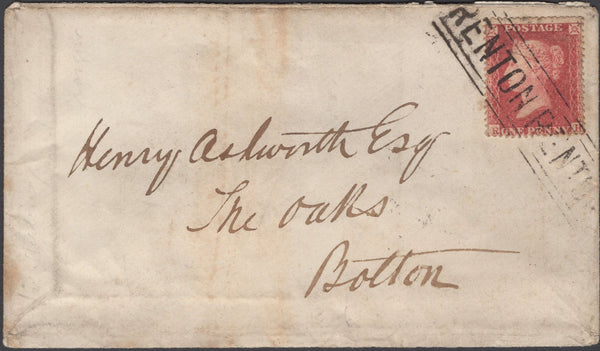 RENTON RENTO
POSTAGE
ONE PENNY
Henry Ashworth Esq
The Oaks
Bolton